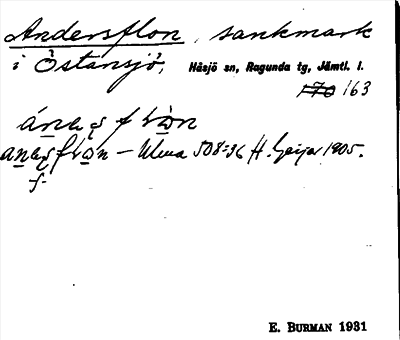 Andersflon, sankmark
i Östansjö, Håsjö sn, Ragunda tg, Jämtl. l.
170 163
— Ulma 508:36 H. Geijer 1905.
E. BURMAN 1931